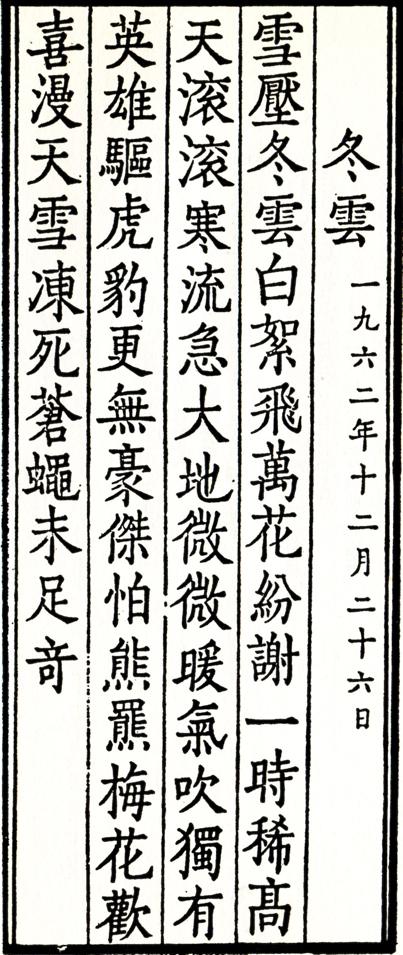 冬雲 一九六二年十二月二十六日
雪壓冬雲白絮飛萬花紛謝一時稀髙
天滚滚寒流急大地微微暖氣吹獨有
英雄驅虎豹更無豪傑怕熊羆梅花歡
喜漫天雪凍死蒼蠅未足竒